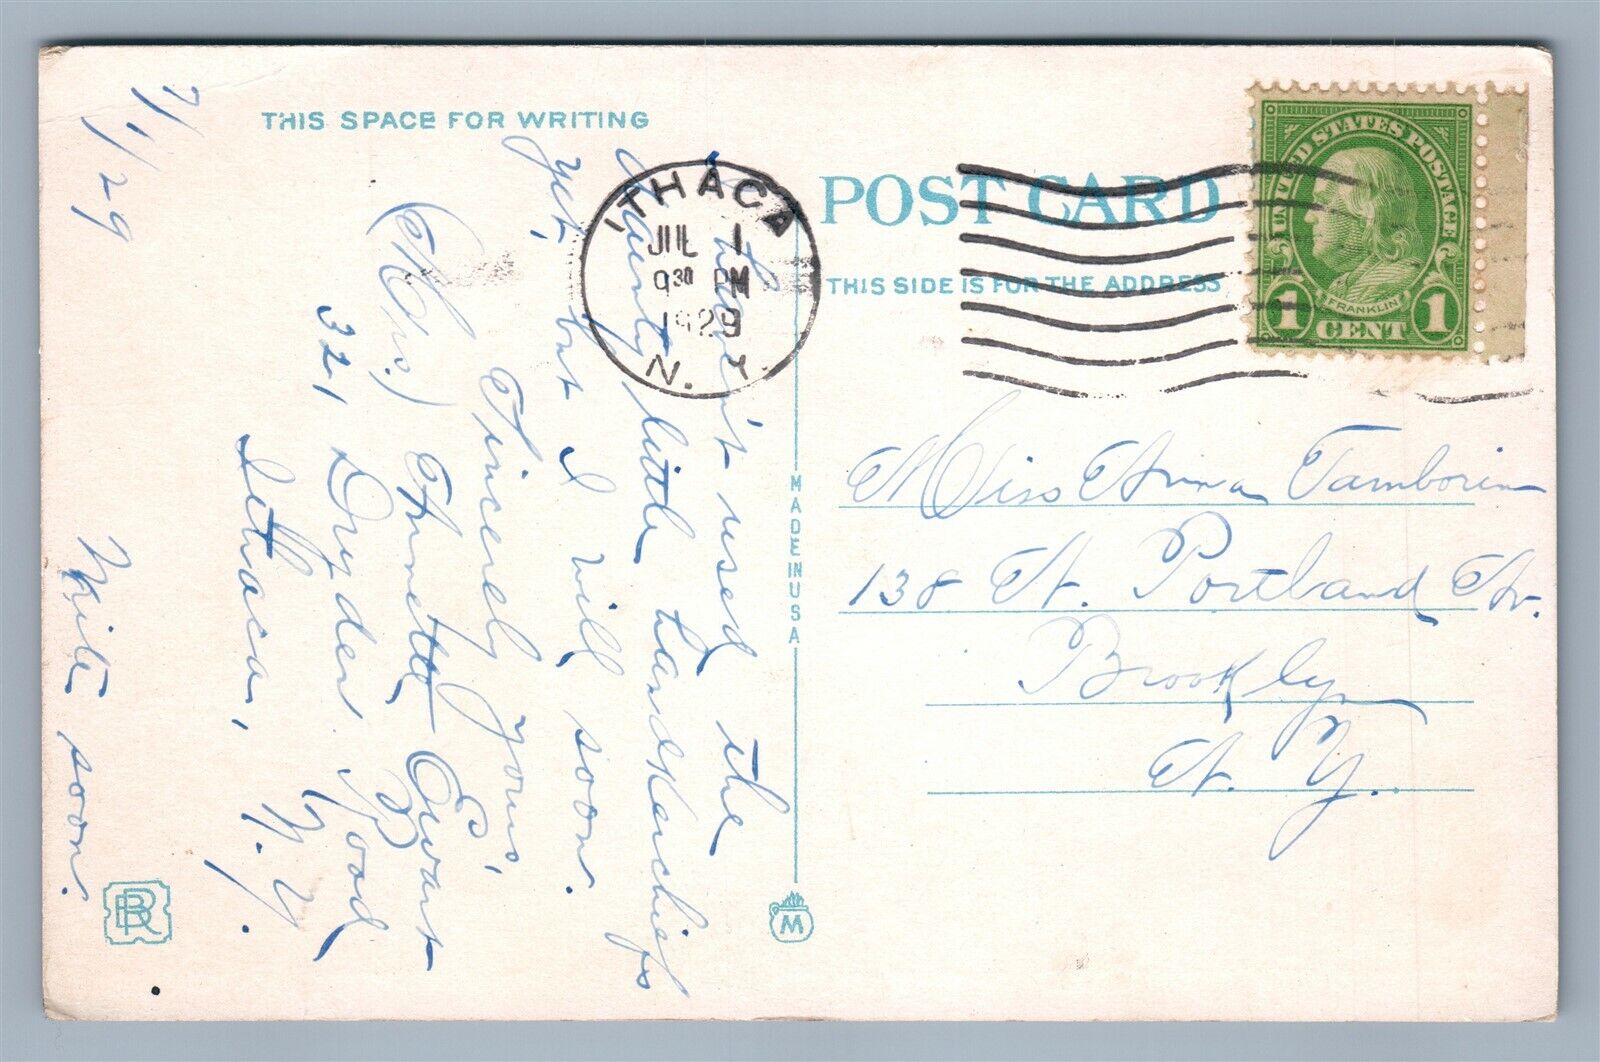 THIS SPACE FOR WRITING
7/1/29
Haven't used the
dainty little handkerchiefs
yet, but I will soon.
Sincerely yours,
(Mrs.) Annetta Ewart
321 Dryden Road
Ithaca, N.Y.
Write soon.
ITHACA
JUL 1
9 30 PM
1929
N. Y.
POST CARD
THIS SIDE IS FOR THE ADDRESS
UNITED STATES POSTAGE
FRANKLIN
1 CENT 1
Miss Anna Tamborin
138 N. Portland Av.
Brooklyn
N. Y.
MADE IN USA
M